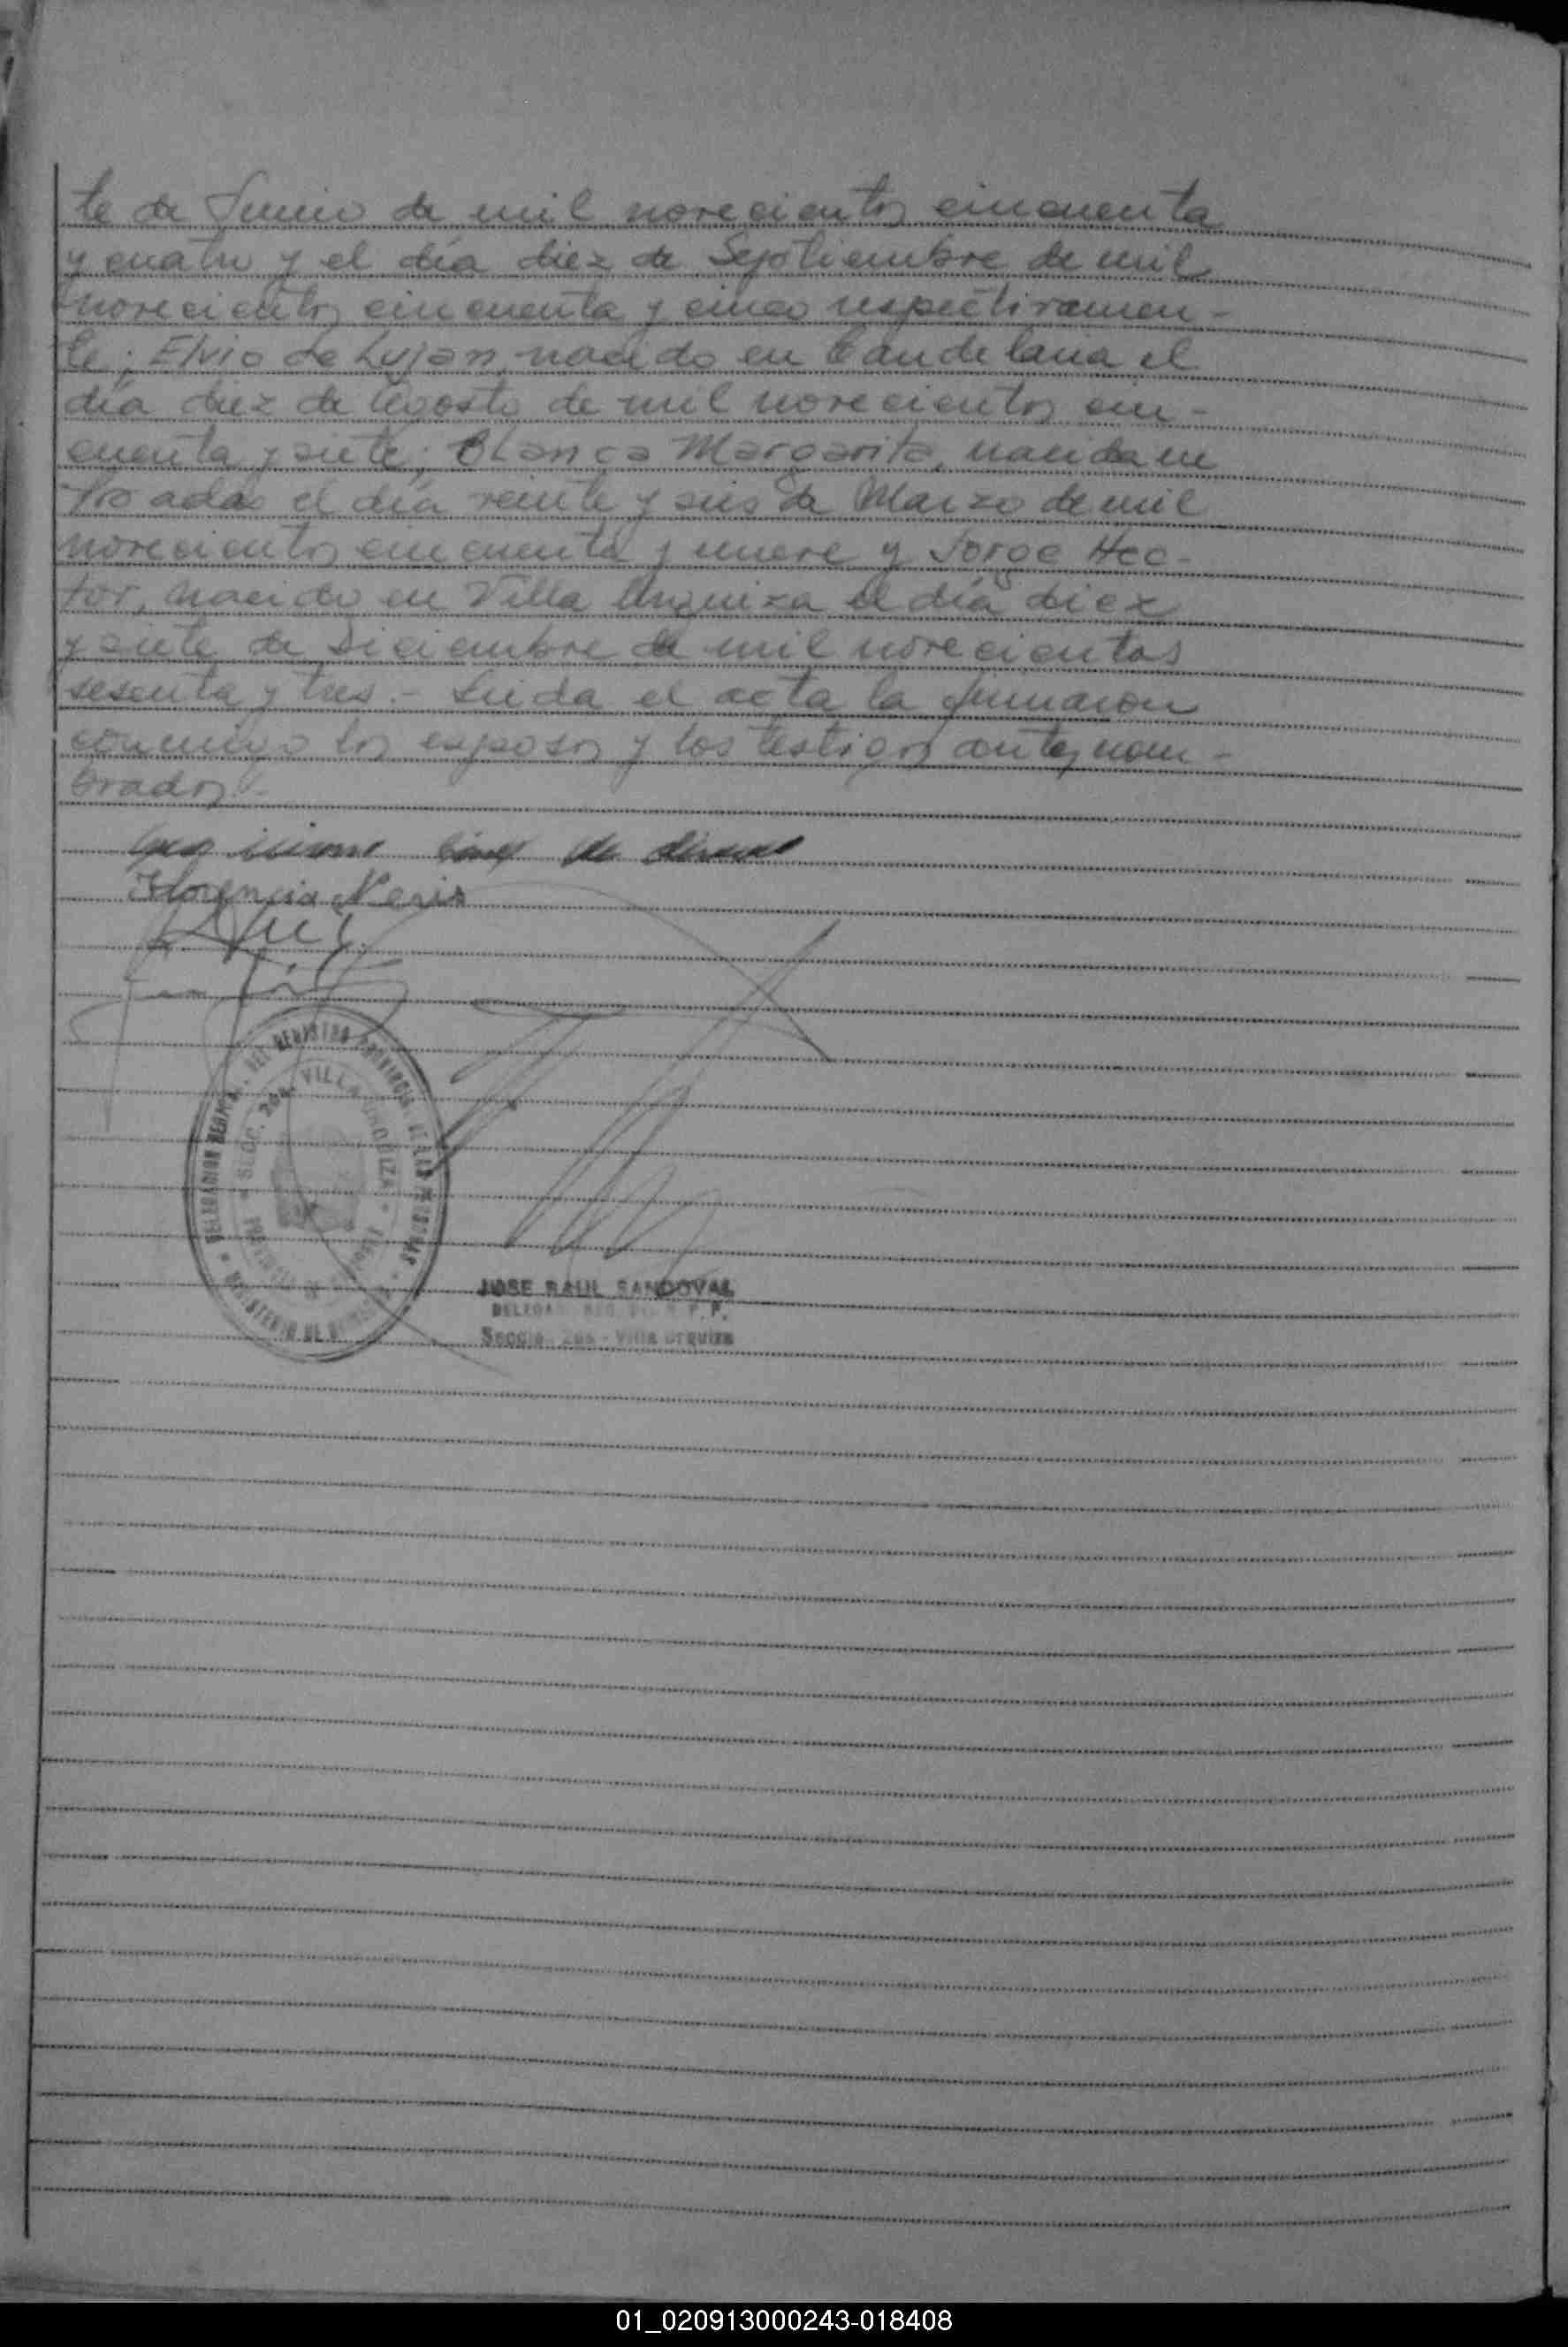 te de Junio de mil novecientos cincuenta
y cuatro y el día diez de Septiembre de mil
novecientos cincuenta y cinco respectivamen-
te; Elvio de Lujan, nacido en Candelaria el
día diez de Agosto de mil novecientos cin-
cuenta y siete; Blanca Margarita, nacida en
Posadas el día veinte y seis de Marzo de mil
novecientos cincuenta y nueve y Jorge Hec-
tor, nacido en Villa Urquiza el día diez
y siete de Diciembre de mil novecientos
sesenta y tres.- Leida el acta la firmaron
conmigo los esposos y los testigos antes nom-
brados.-
de
Florencia Neris
DEL REGISTRO PROVINCIAL DE LAS PERSONAS
SECC. 2da. VILLA URQUIZA
JOSE RAUL SANDOVAL
P. P.
Villa Urquiza
01_020913000243-018408